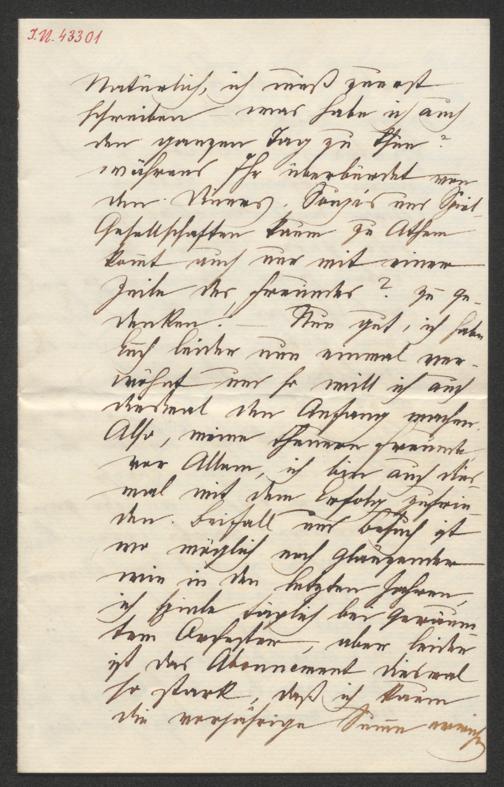 I.N. 43301
Natürlich, ich muß zuerst
schreiben was habe ich auch
den ganzen Tag zu thun?
während Ihr überbürdet von
den Diners, Soupés und Spiel-
Gesellschaften kaum zu Athem
kommt auch nur mit einer
Zeile des Freundes? zu ge-
denken! — Nun gut, ich habe
Euch leider nun einmal ver-
wöhnt und so will ich auch
diesmal den Anfang machen.
Also, meine theuern Freunde
vor Allem, ich bin auch dies
mal mit dem Erfolg zufrie-
den. Beifall und Besuch ist
wo möglich noch glänzender
wie in den letzten Jahren,
ich spiele täglich bei geräum
tem Orchester, aber leider
ist das Abonnement diesmal
so stark, daß ich kaum
die vorjährige Summe